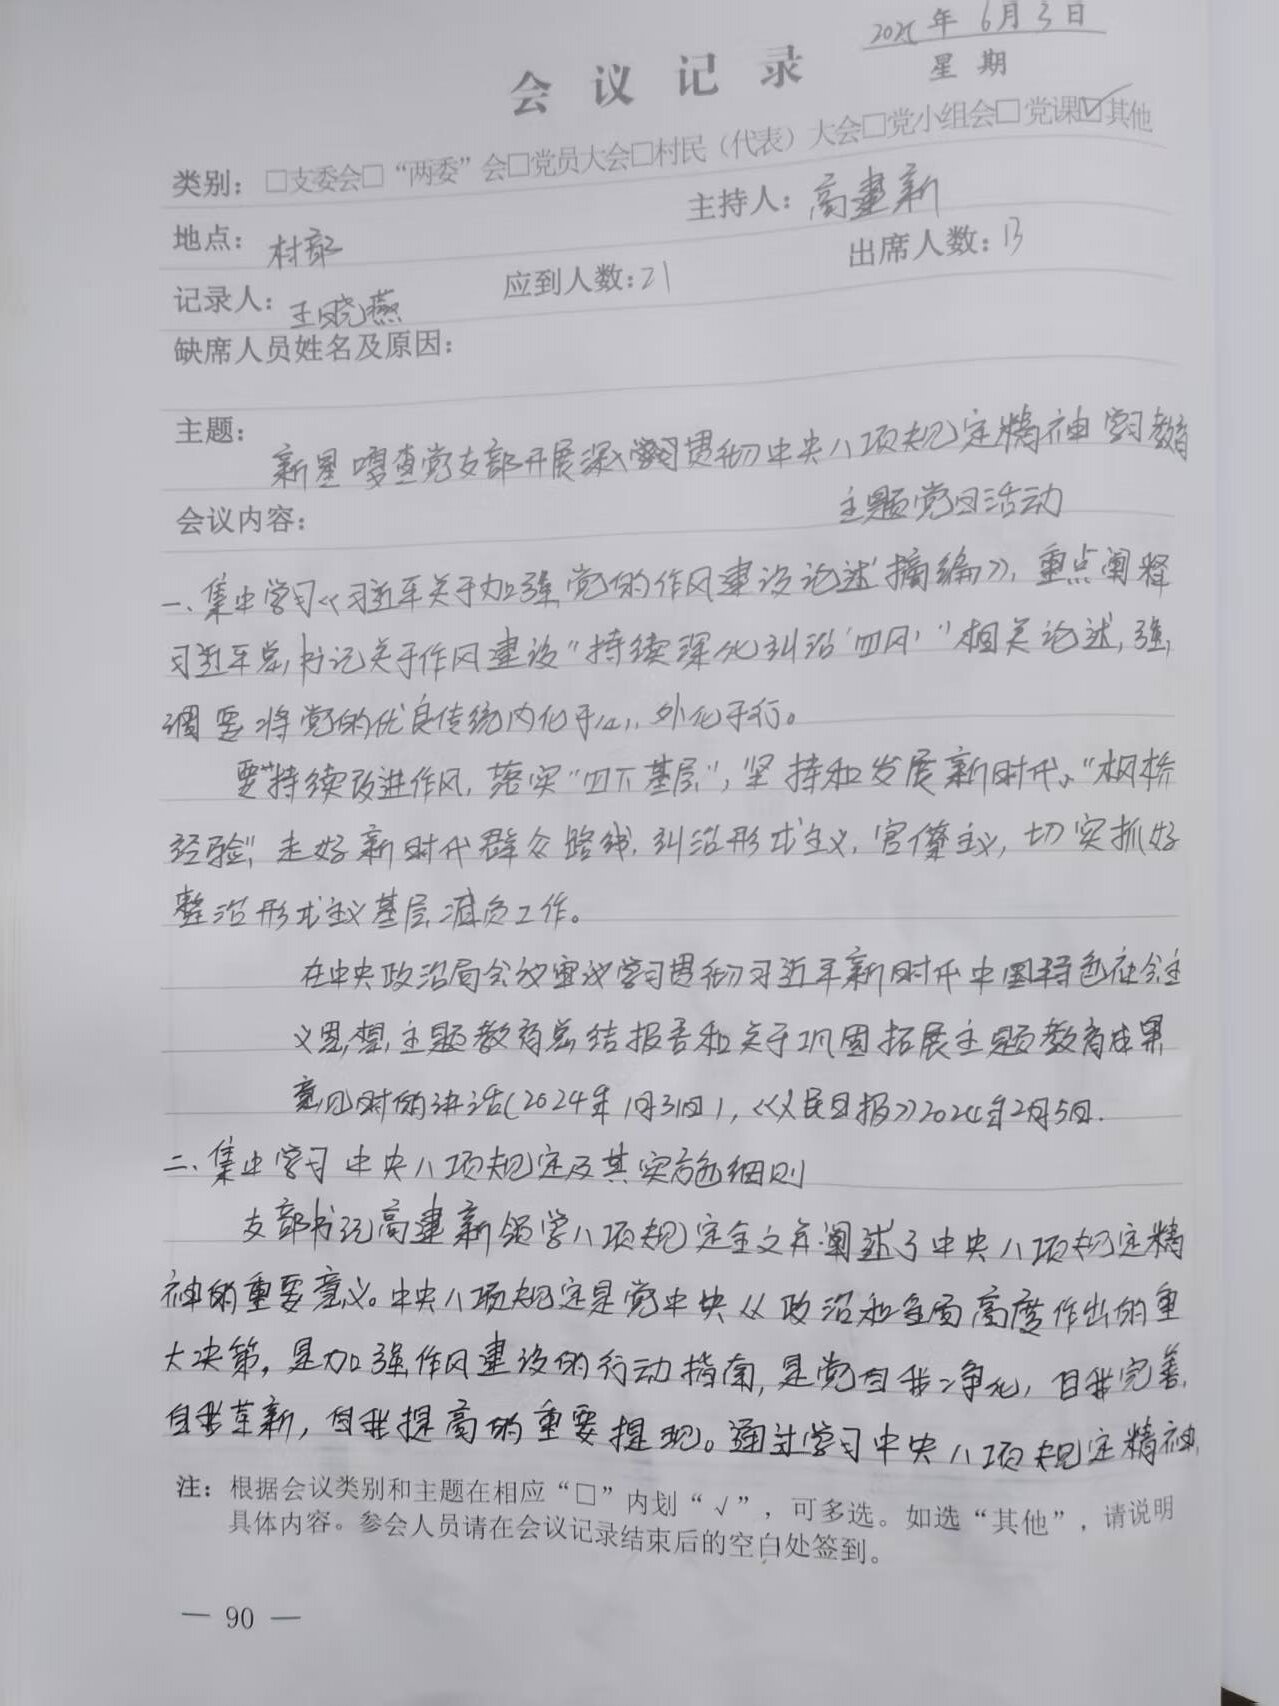 2025年6月3日
会议记录
星期
类别：□支委会□“两委”会□党员大会□村民（代表）大会□党小组会□党课☑其他
地点：村部 主持人：高建新
记录人：王晓燕 应到人数：21 出席人数：13
缺席人员姓名及原因：
主题：
新星嘎查党支部开展深入学习贯彻中央八项规定精神学习教育
会议内容： 主题党日活动
一、集中学习《习近平关于加强党的作风建设论述摘编》，重点阐释
习近平总书记关于作风建设“持续深化纠治‘四风’”相关论述，强
调要将党的优良传统内化于心、外化于行。
要“持续改进作风，落实“四下基层”，坚持和发展新时代“枫桥
经验”，走好新时代群众路线，纠治形式主义，官僚主义，切实抓好
整治形式主义基层减负工作。
在中央政治局会议审议学习贯彻习近平新时代中国特色社会主
义思想主题教育总结报告和关于巩固拓展主题教育成果
意见时的讲话（2024年1月31日），《人民日报》2024年2月5日.
二、集中学习中央八项规定及其实施细则
支部书记高建新领学八项规定全文并阐述了中央八项规定精
神的重要意义。中央八项规定是党中央从政治和全局高度作出的重
大决策，是加强作风建设的行动指南，是党自我净化，自我完善，
自我革新，自我提高的重要提现。通过学习中央八项规定精神，
注：根据会议类别和主题在相应“□”内划“√”，可多选。如选“其他”，请说明
具体内容。参会人员请在会议记录结束后的空白处签到。
— 90 —